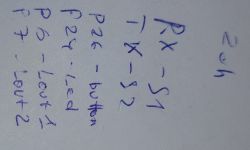 Rx - S1
Tx - S2
P26 - button
P24 - Led
P6 - Lout 1
P7 - Lout 2